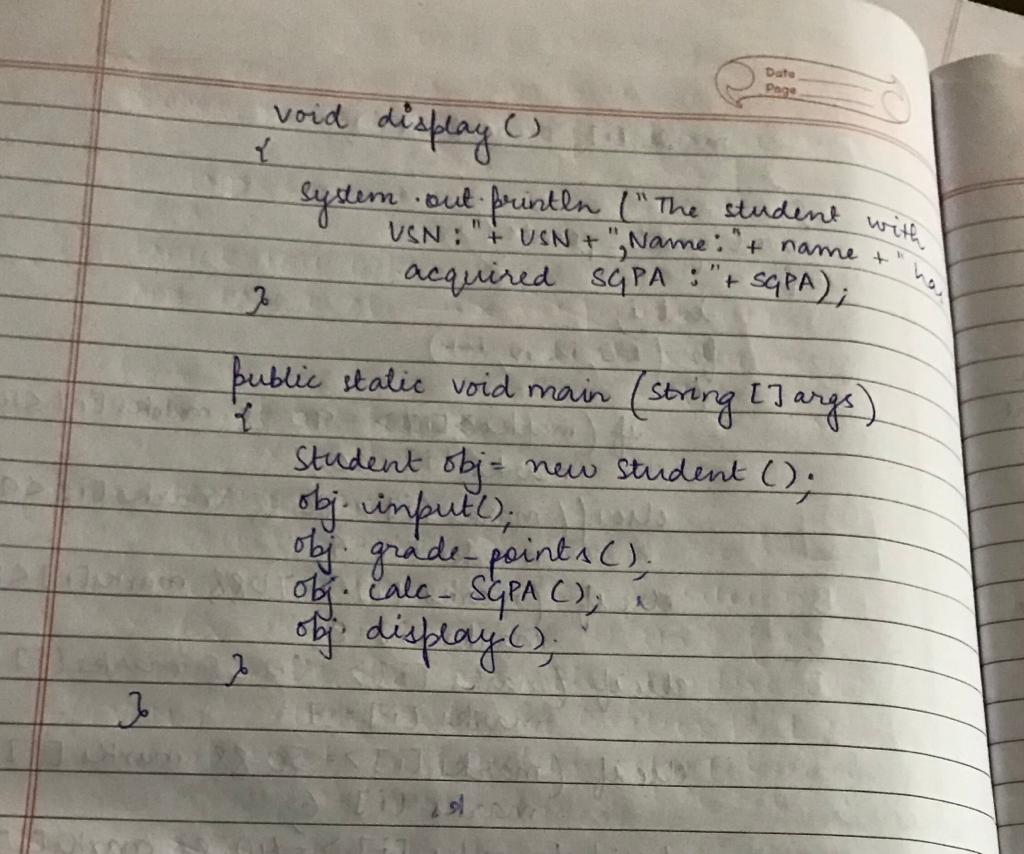 Date
Page
void display ()
{
System.out.println ("The student with
USN : "+ USN + ", Name : "+ name + "
acquired SGPA : "+ SGPA);
}
public static void main (String [] args)
{
Student obj = new Student ();
obj. input();
obj. grade_points();
obj. calc_SGPA ();
obj. display();
}
}